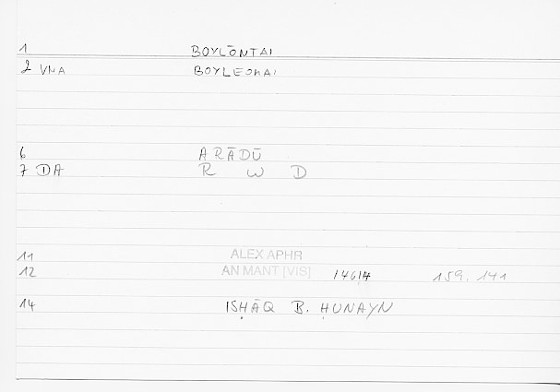 1 BOYLŌNTAI
2 VNA BOYLEOMAI
6 ARĀDŪ
7 DA R W D
11 ALEX APHR
12 AN MANT [VIS] 146,14 159.141
14 ISḤĀQ B. ḤUNAYN